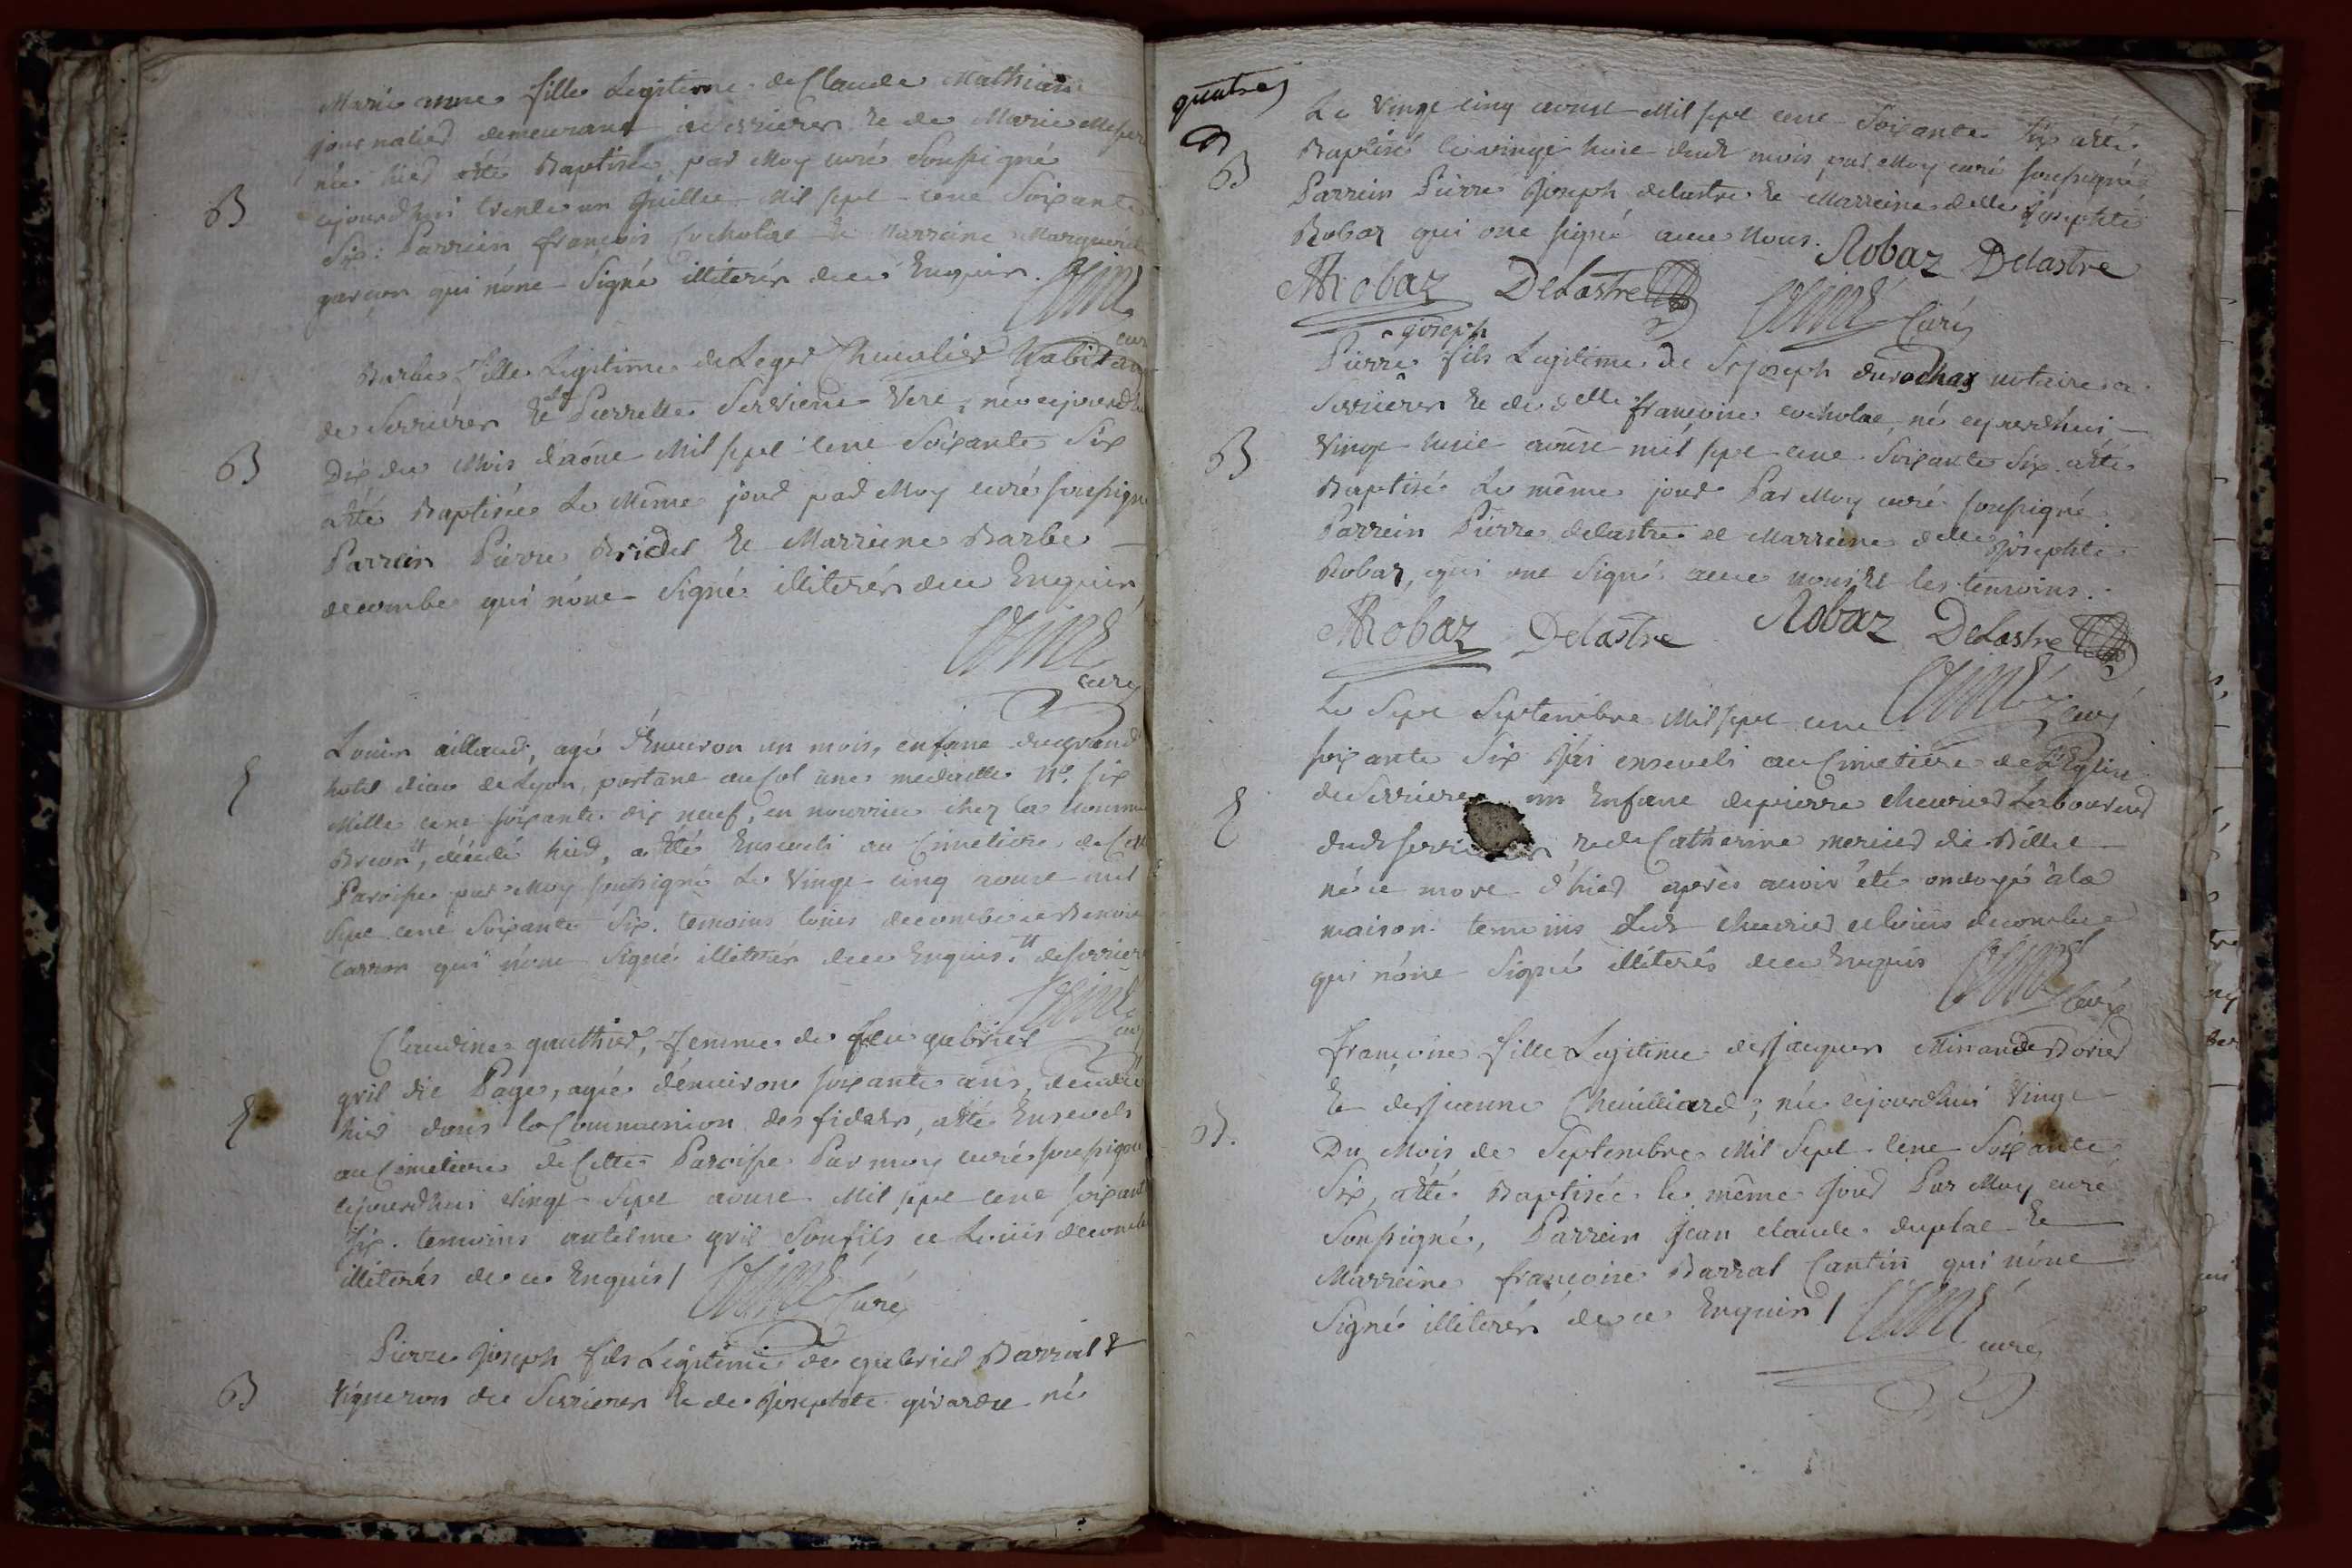 Marie anne fille Legitime de Claude Mathian
journalier demeurant a Serrieres & de Marie
née hier a été Baptisée par Moy curé Soussigné
B
cejourdhui trente un Juillet Mil sept cent Soixante
Six: Parrein françois Cocholat & Marreine Marguerite
garçon qui n'ont Signé illiterés de ce Enquis.
curé
Barbe fille Legitime de Leger Chevalier habitant
de Serrieres & de Pierrette Servient Veré, née cejourdhui
B
Dix du Mois d'aout Mil sept Cent Soixante Six
a été Baptisée Le Même jour par Moy curé soussigné
Parrein Pierre Bridet & Marreine Barbe
decombe qui n'ont Signé illiterés de ce Enquis
curé
Louis aillaud, agé d'Environ un mois, enfant du grand
hotel dieu de Lyon, portant au Col une medaille N°. six
E
Mille cent soixante dix neuf, en nourrice chez la
decedé hier, a été Enseveli au Cimetiere de Cette
Paroisse par Moy soussigné Le Vingt cinq aoust mil
Sept cent Soixante Six. temoins louis decombe et Benoit
Carron qui n'ont Signé illiterés de ce Enquis. de serrieres
curé
Claudine gauthier, femme de feu gabriel
gril dit Page, agée d'environ soixante ans, decedée
E
hier dans la Communion des fideles, a été Enseveli
au Cimetiere de Cette Paroisse Par moy curé soussigné
cejourdhui vingt Sept aoust Mil sept cent soixante
six. temoins antelme gril Son fils et Louis decombe
illiterés de ce Enquis/
Curé
Pierre Joseph fils Légitime de gabriel Barral &
B
Vigneron de Serrieres & de Josephte girardet né
quatre
Le Vingt cinq aoust Mil sept cent Soixante Six a été
B
Baptisé le vingt huit dudt mois par Moy curé soussigné
Parrein Pierre Joseph delastre & Marreine delle Josephte
Robaz qui ont signé avec Nous. Robaz Delastre
MRobaz DeLastre
Curé
joseph
Pierre fils Legitime de Sr joseph durochaz notaire a
Serrieres & de delle françoise cocholat, né cejourdhui
B
Vingt huit aoust mil sept cent Soixante Six a été
Baptisé Le même jour Par Moy curé soussigné
Parrein Pierre delastre et Marreine delle Josephte
Robaz, qui ont Signé avec nous & les temoins.
MRobaz Delastre Robaz DeLastre
Le Sept Septembre Mil sept cent
curé
soixante Six J'ai enseveli au Cimetiere de L'Eglise
E
de Serrieres un Enfant de pierre cheurier Laboureur
dudt & de Catherine mercier dit Billet
né et mort d'hier après avoir été ondoyé à la
maison. temoins ledt cheurier et louis decombe
qui n'ont Signé illiterés de ce Enquis
curé
françoise fille Legitime de jacques Minand Borier
& de jeanne Cheuilliard; née cejourdhui Vingt
B.
Du Mois de Septembre Mil Sept Cent Soixante
Six, a été Baptisée le même Jour Par Moy curé
Soussigné, Parrein Jean claude duplat &
Marreine françoise Barral Cantin qui n'ont
Signé illiterés de ce Enquis/
curé